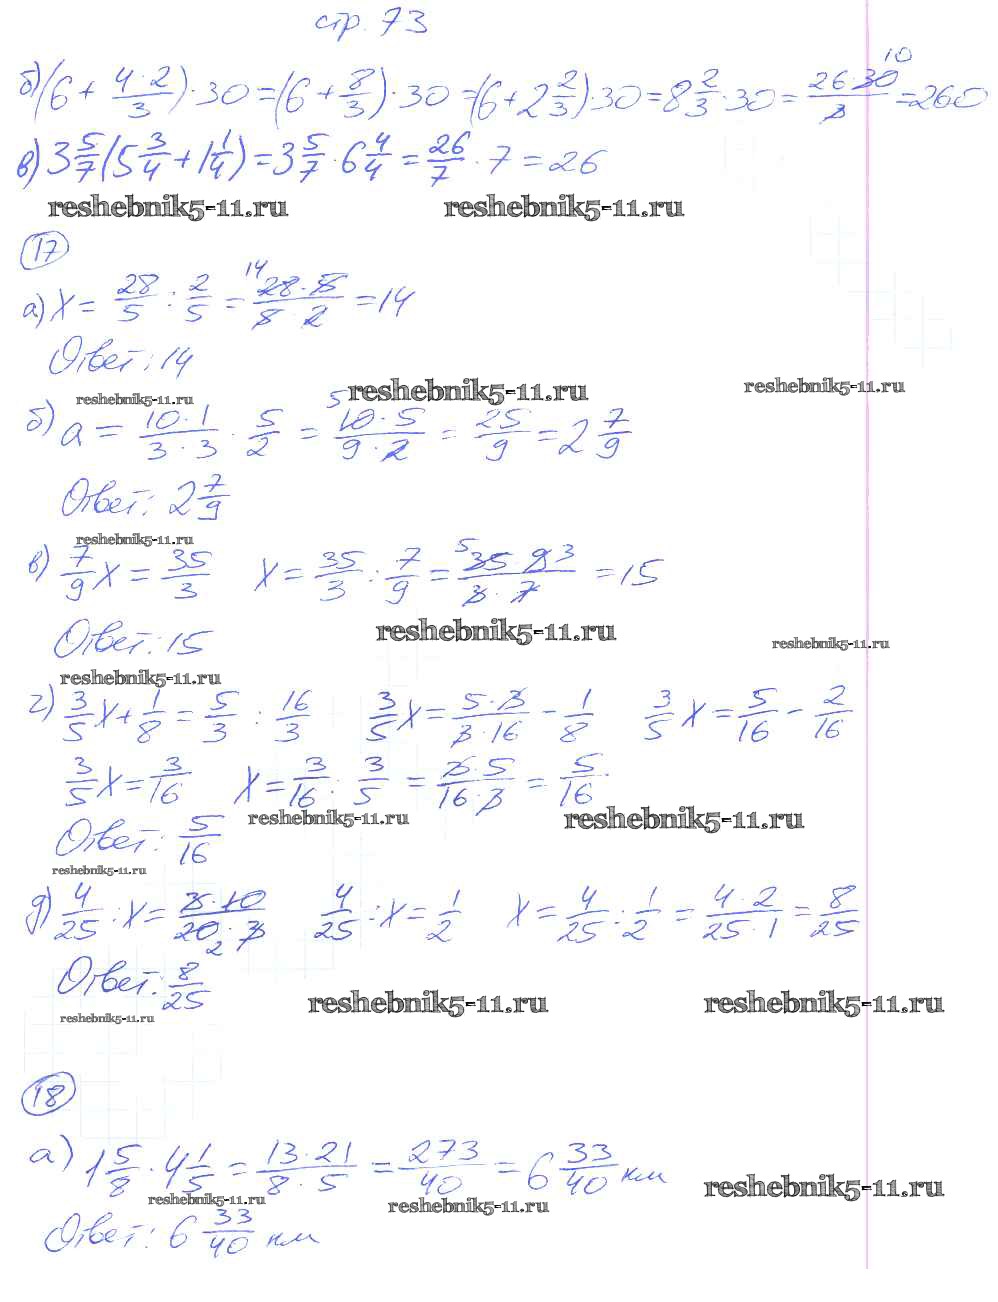 стр. 73
б) (6 + 4·2/3) · 30 = (6 + 8/3) · 30 = (6 + 2 2/3) · 30 = 8 2/3 · 30 = 26·30/3 = 260
10
в) 3 5/7 (5 3/4 + 1 1/4) = 3 5/7 · 6 4/4 = 26/7 · 7 = 26
reshebnik5-11.ru reshebnik5-11.ru
17
а) x = 28/5 : 2/5 = 28·5/5·2 = 14
14
Ответ: 14
reshebnik5-11.ru reshebnik5-11.ru reshebnik5-11.ru
б) a = 10·1/3·3 · 5/2 = 10·5/9·2 = 25/9 = 2 7/9
5
Ответ: 2 7/9
reshebnik5-11.ru
в) 7/9 x = 35/3 x = 35/3 : 7/9 = 35·9/3·7 = 15
5 3
Ответ: 15
reshebnik5-11.ru reshebnik5-11.ru
reshebnik5-11.ru
г) 3/5 x + 1/8 = 5/3 : 16/3 3/5 x = 5·3/3·16 - 1/8 3/5 x = 5/16 - 2/16
3/5 x = 3/16 x = 3/16 : 3/5 = 3·5/16·3 = 5/16
reshebnik5-11.ru reshebnik5-11.ru
Ответ: 5/16
reshebnik5-11.ru
д) 4/25 : x = 3·10/20·3 4/25 : x = 1/2 x = 4/25 : 1/2 = 4·2/25·1 = 8/25
2
Ответ: 8/25
reshebnik5-11.ru reshebnik5-11.ru
reshebnik5-11.ru
18
а) 1 5/8 · 4 1/5 = 13·21/8·5 = 273/40 = 6 33/40 км
reshebnik5-11.ru reshebnik5-11.ru reshebnik5-11.ru
Ответ: 6 33/40 км